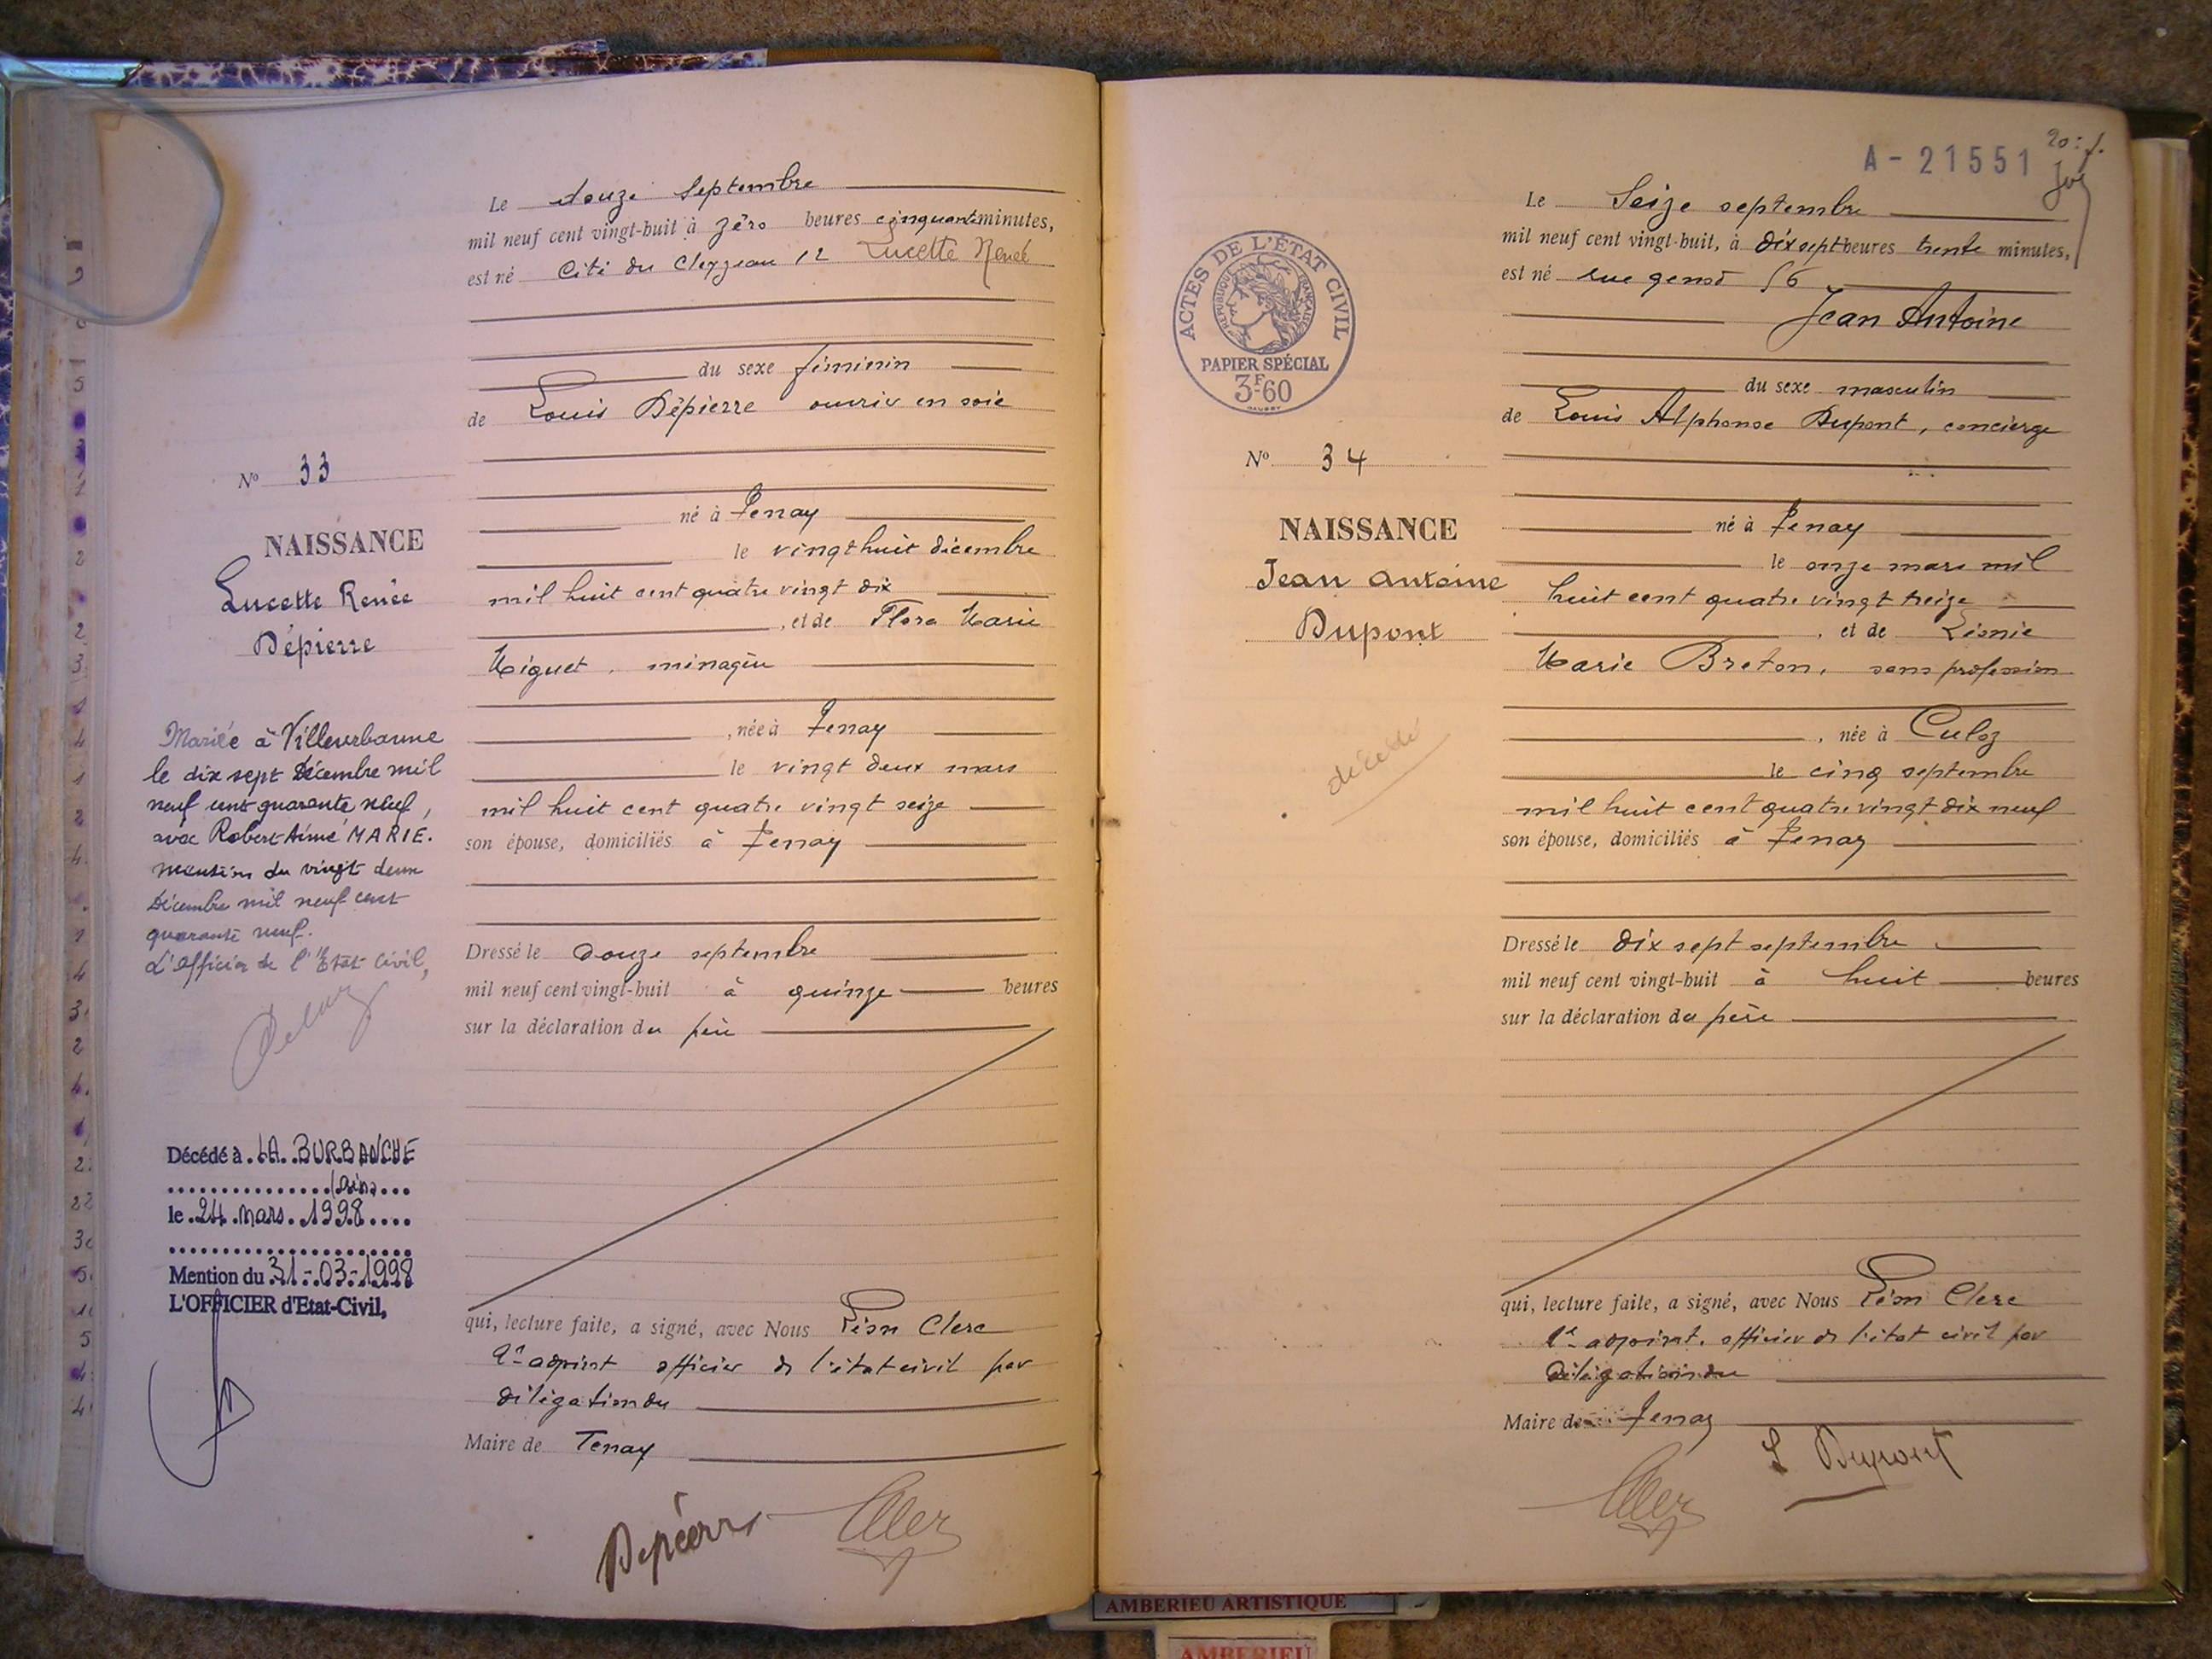 Le douze Septembre
mil neuf cent vingt-huit à zéro heures cinquante minutes,
est né Cité du Clezeau 12 Lucette Renée
du sexe féminin
de Louis Dépierre ouvrier en soie
N° 33
né à Tenay
NAISSANCE
le vingt huit décembre
Lucette Renée
mil huit cent quatre vingt dix
Dépierre
, et de Flora Marie
Miguet, ménagère
, née à Tenay
Mariée à Villeurbanne
le vingt deux mars
le dix sept Décembre mil
mil huit cent quatre vingt seize
neuf cent quarante neuf,
avec Robert Aimé MARIE.
son épouse, domiciliés à Tenay
mention du vingt deux
Décembre mil neuf cent
quarante neuf.
L'officier de l'Etat Civil,
Dressé le douze septembre
mil neuf cent vingt-huit à quinze heures
sur la déclaration du père
Décédé à LA BURBANCHE
(Ain)
le 24 mars 1998
Mention du 31-03-1998
L'OFFICIER d'Etat-Civil,
qui, lecture faite, a signé, avec Nous Léon Clerc
adjoint officier de l'état civil par
délégation du
Maire de Tenay
Depierre
Clerc
A-21551
Le Seize septembre
mil neuf cent vingt-huit, à dix sept heures trente minutes,
est né rue 56
Jean Antoine
ACTES DE L'ÉTAT CIVIL
RÉPUBLIQUE FRANÇAISE
PAPIER SPÉCIAL
3F60
du sexe masculin
de Louis Alphonse Dupont, concierge
N° 34
né à Tenay
NAISSANCE
le onze mars mil
Jean Antoine
huit cent quatre vingt treize
Dupont
, et de Léonie
Marie Breton, sans profession
, née à Culoz
décédé
le cinq septembre
mil huit cent quatre vingt dix neuf
son épouse, domiciliés à Tenay
Dressé le dix sept septembre
mil neuf cent vingt-huit à huit heures
sur la déclaration du père
qui, lecture faite, a signé, avec Nous Léon Clerc
adjoint, officier de l'état civil par
délégation du
Maire de Tenay
L Dupont
Clerc
AMBERIEU ARTISTIQUE
AMBERIEU